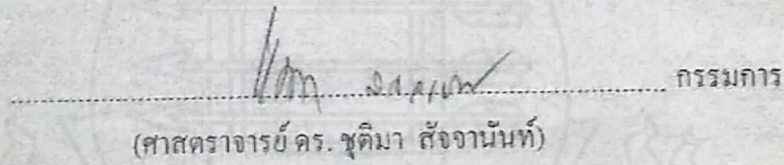 กรรมการ
(ศาสตราจารย์ ดร. ชุติมา สัจจานันท์)